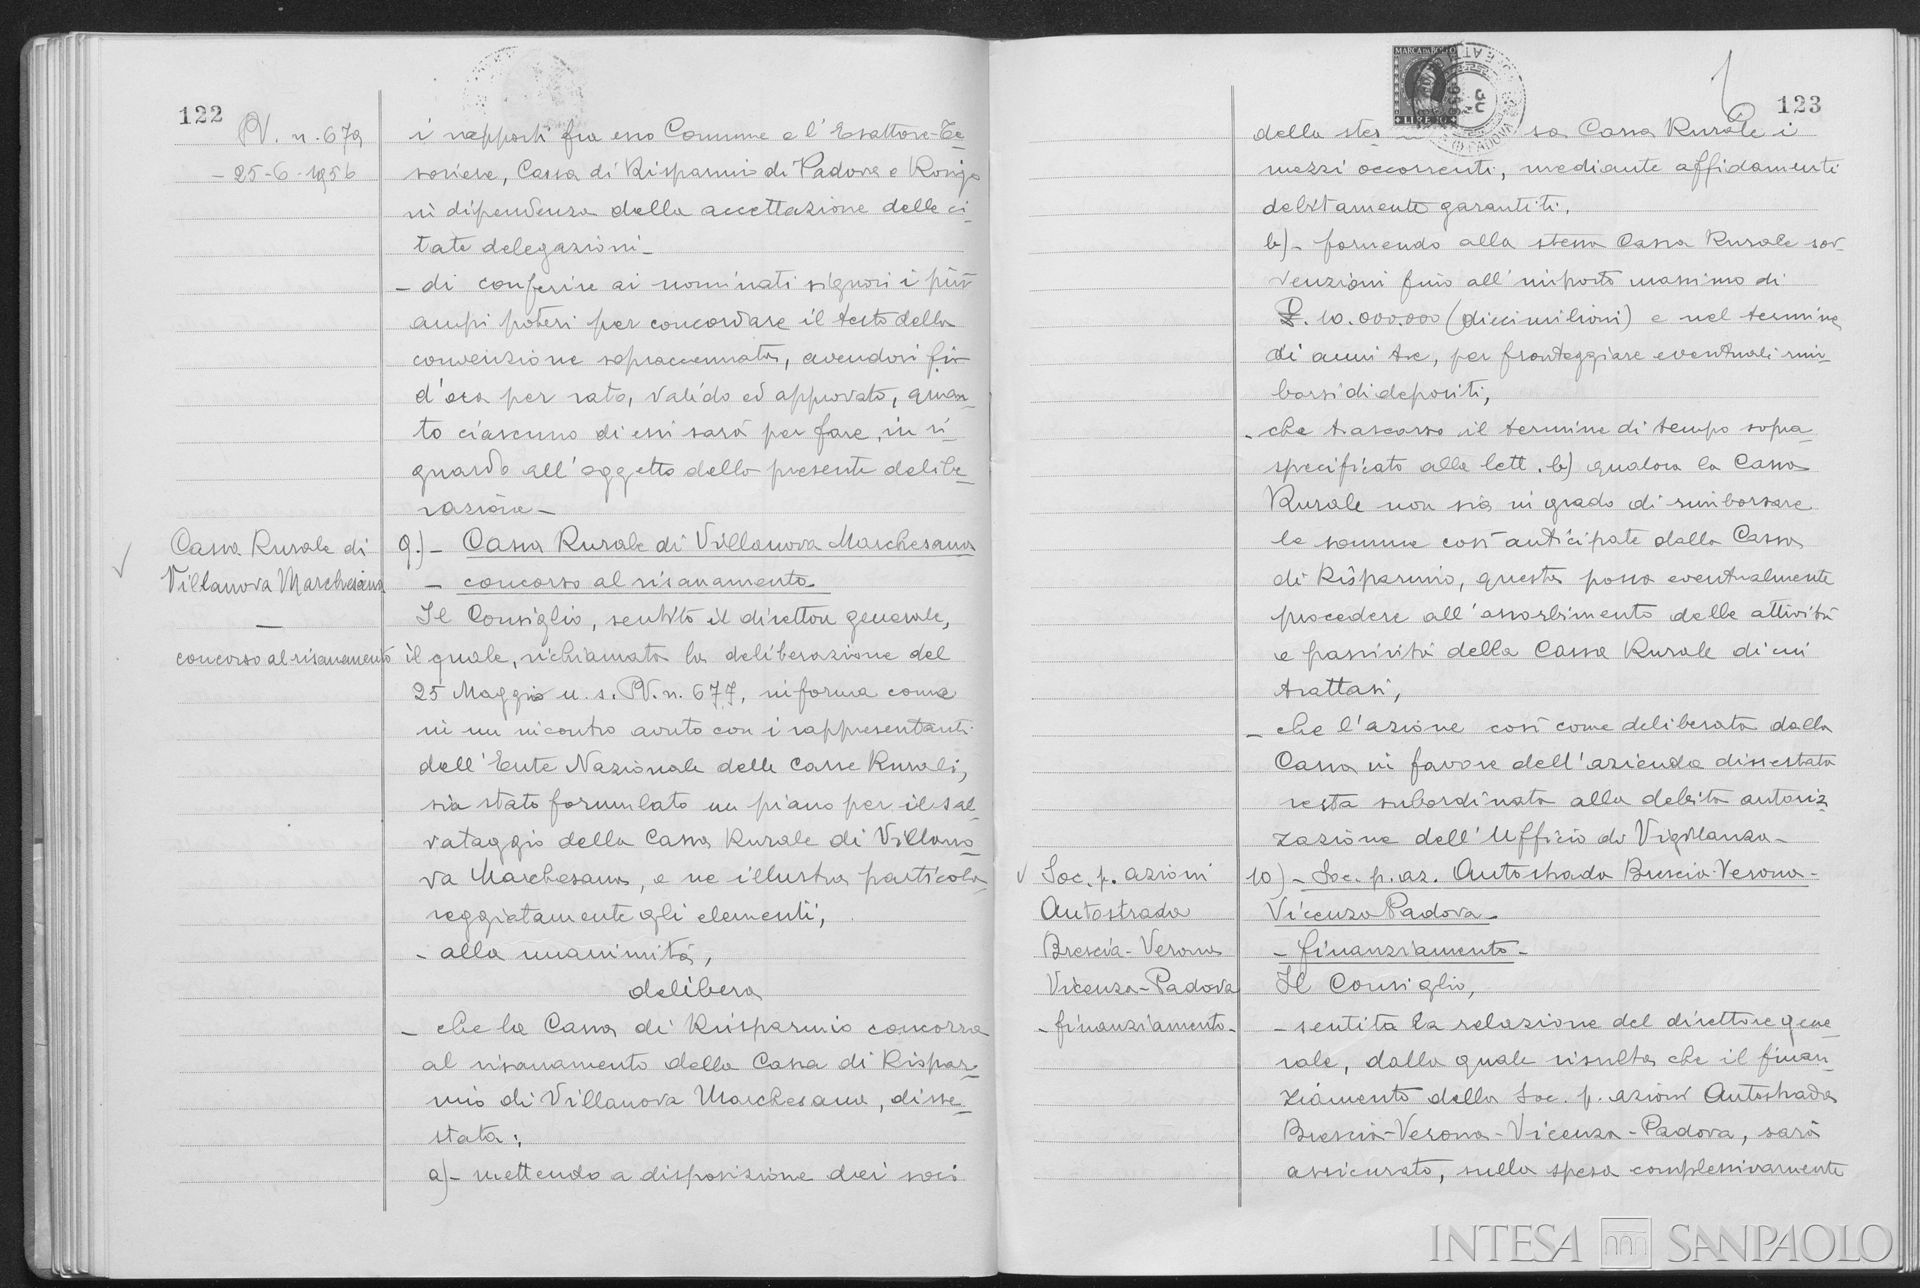 122
PV. n. 679
- 25-6-1956
i rapporti fra esso Comune e l'Esattore-Te-
soriere, Cassa di Risparmio di Padova e Rovigo
in dipendenza della accettazione delle ci-
tate delegazioni -
- di conferire ai nominati signori i più
ampi poteri per concordare il testo della
convenzione sopraccennata, avendosi fin
d'ora per rato, valido ed approvato, quan-
to ciascuno di essi sarà per fare, in ri-
guardo all'oggetto della presente delibe-
razione -
Cassa Rurale di
Villanova Marchesana
-
concorso al risanamento
9.) - Cassa Rurale di Villanova Marchesana
- concorso al risanamento -
Il Consiglio, sentito il direttore generale,
il quale, richiamata la deliberazione del
25 Maggio u. s. PV. n. 677, informa come
in un incontro avuto con i rappresentanti
dell'Ente Nazionale delle Casse Rurali,
sia stato formulato un piano per il sal-
vataggio della Cassa Rurale di Villano-
va Marchesana, e ne illustra particola-
reggiatamente gli elementi,
- alla unanimità,
delibera
- che la Cassa di Risparmio concorra
al risanamento della Cassa di Rispar-
mio di Villanova Marchesana, disse-
stata:
a) - mettendo a disposizione dei soci
MARCA DA BOLLO
LIRE
PADOVA
123
della stes sa Cassa Rurale i
mezzi occorrenti, mediante affidamenti
debitamente garantiti.
b) - fornendo alla stessa Cassa Rurale sov-
venzioni fino all'importo massimo di
£. 10.000.000 (diecimilioni) e nel termine
di anni tre, per fronteggiare eventuali rim-
borsi di depositi,
- che trascorso il termine di tempo sopra-
specificato alla lett. b) qualora la Cassa
Rurale non sia in grado di rimborsare
le somme così anticipate dalla Cassa
di Risparmio, questa possa eventualmente
procedere all'assorbimento delle attività
e passività della Cassa Rurale di cui
trattasi,
- che l'azione così come deliberata dalla
Cassa in favore dell'azienda dissestata
resta subordinata alla debita autoriz-
zazione dell'Ufficio di Vigilanza -
Soc. p. azioni
Autostrada
Brescia - Verona
Vicenza - Padova
- finanziamento -
10) - Soc. p. az. Autostrada Brescia-Verona-
Vicenza Padova -
- finanziamento -
Il Consiglio,
- sentita la relazione del direttore gene-
rale, dalla quale risulta che il finan-
ziamento della Soc. p. azioni Autostrada
Brescia-Verona-Vicenza-Padova, sarà
assicurato, sulla spesa complessivamente
INTESA SANPAOLO